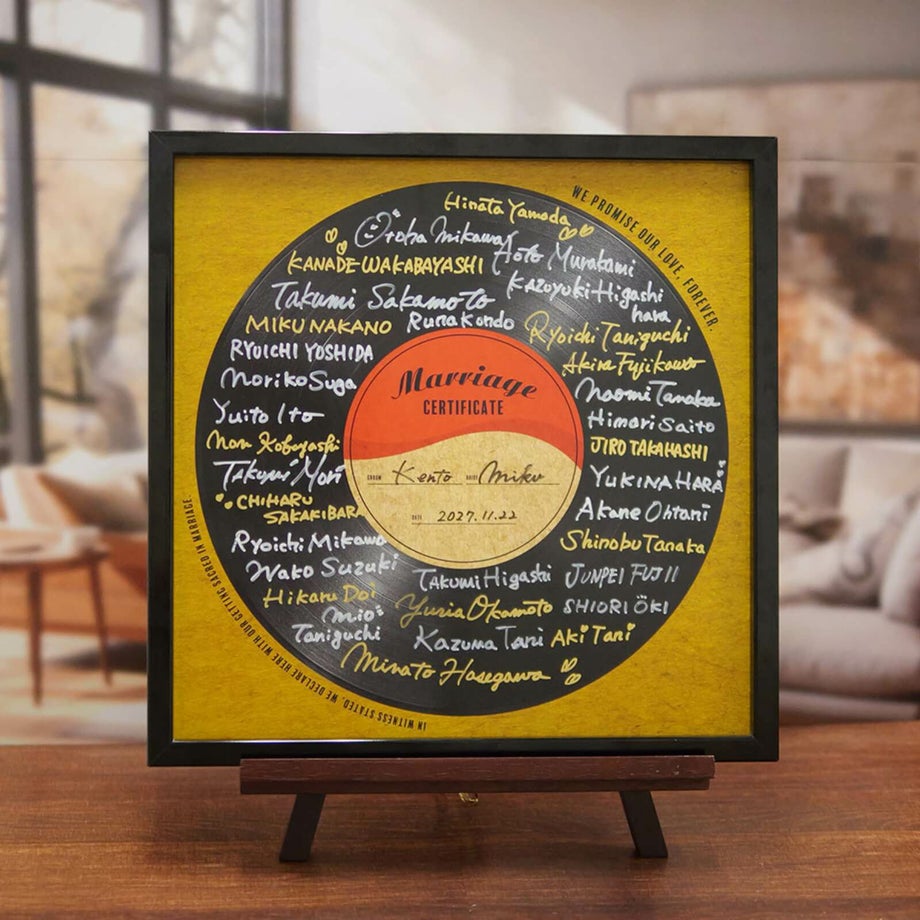 WE PROMISE OUR LOVE, FOREVER.
Hinata Yamada
Otoha Mikawa
Aoto Murakami
KANADE WAKABAYASHI
Kazuyuki Higashi
hara
Takumi Sakamoto
MIKU NAKANO
Runa Kondo
Ryoichi Taniguchi
RYUICHI YOSHIDA
Akira Fujikawa
Noriko Suga
Naomi Tanaka
Yuito Ito
Himari Saito
Non Kobayashi
JIRO TAKAHASHI
Takumi Mori
YUKINA HARA
CHIHARU
SAKAKIBARA
Akane Ohtani
Ryoichi Mikawa
Shinobu Tanaka
Wako Suzuki
TAKUMI Higashi
JUNPEI FUJII
Hikaru Doi
Yuria Okamoto
SHIORI ÖKI
Mio
Taniguchi
Kazuma Tani
Aki Tani
Minato Hasegawa
Marriage
CERTIFICATE
GROOM Kento BRIDE Miku
DATE 2027.11.22
IN WITNESS STATED, WE DECLARE HERE WITH OUR GETTING SACRED IN MARRIAGE.